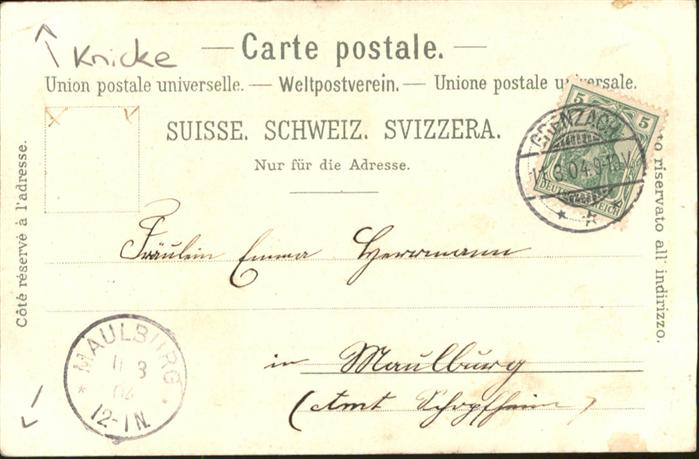 Knicke
Carte postale.
Union postale universelle. — Weltpostverein. — Unione postale universale.
SUISSE. SCHWEIZ. SVIZZERA.
Nur für die Adresse.
Côté réservé à l'adresse.
riservato all' indirizzo.
5 5
DEUTSCHES REICH
GRENZACH
11.3.04.9-10V.
Fräulein Emma Herrmann
in Maulburg
(Amt Schopfheim)
MAULBURG
11 3
04
12-1N.